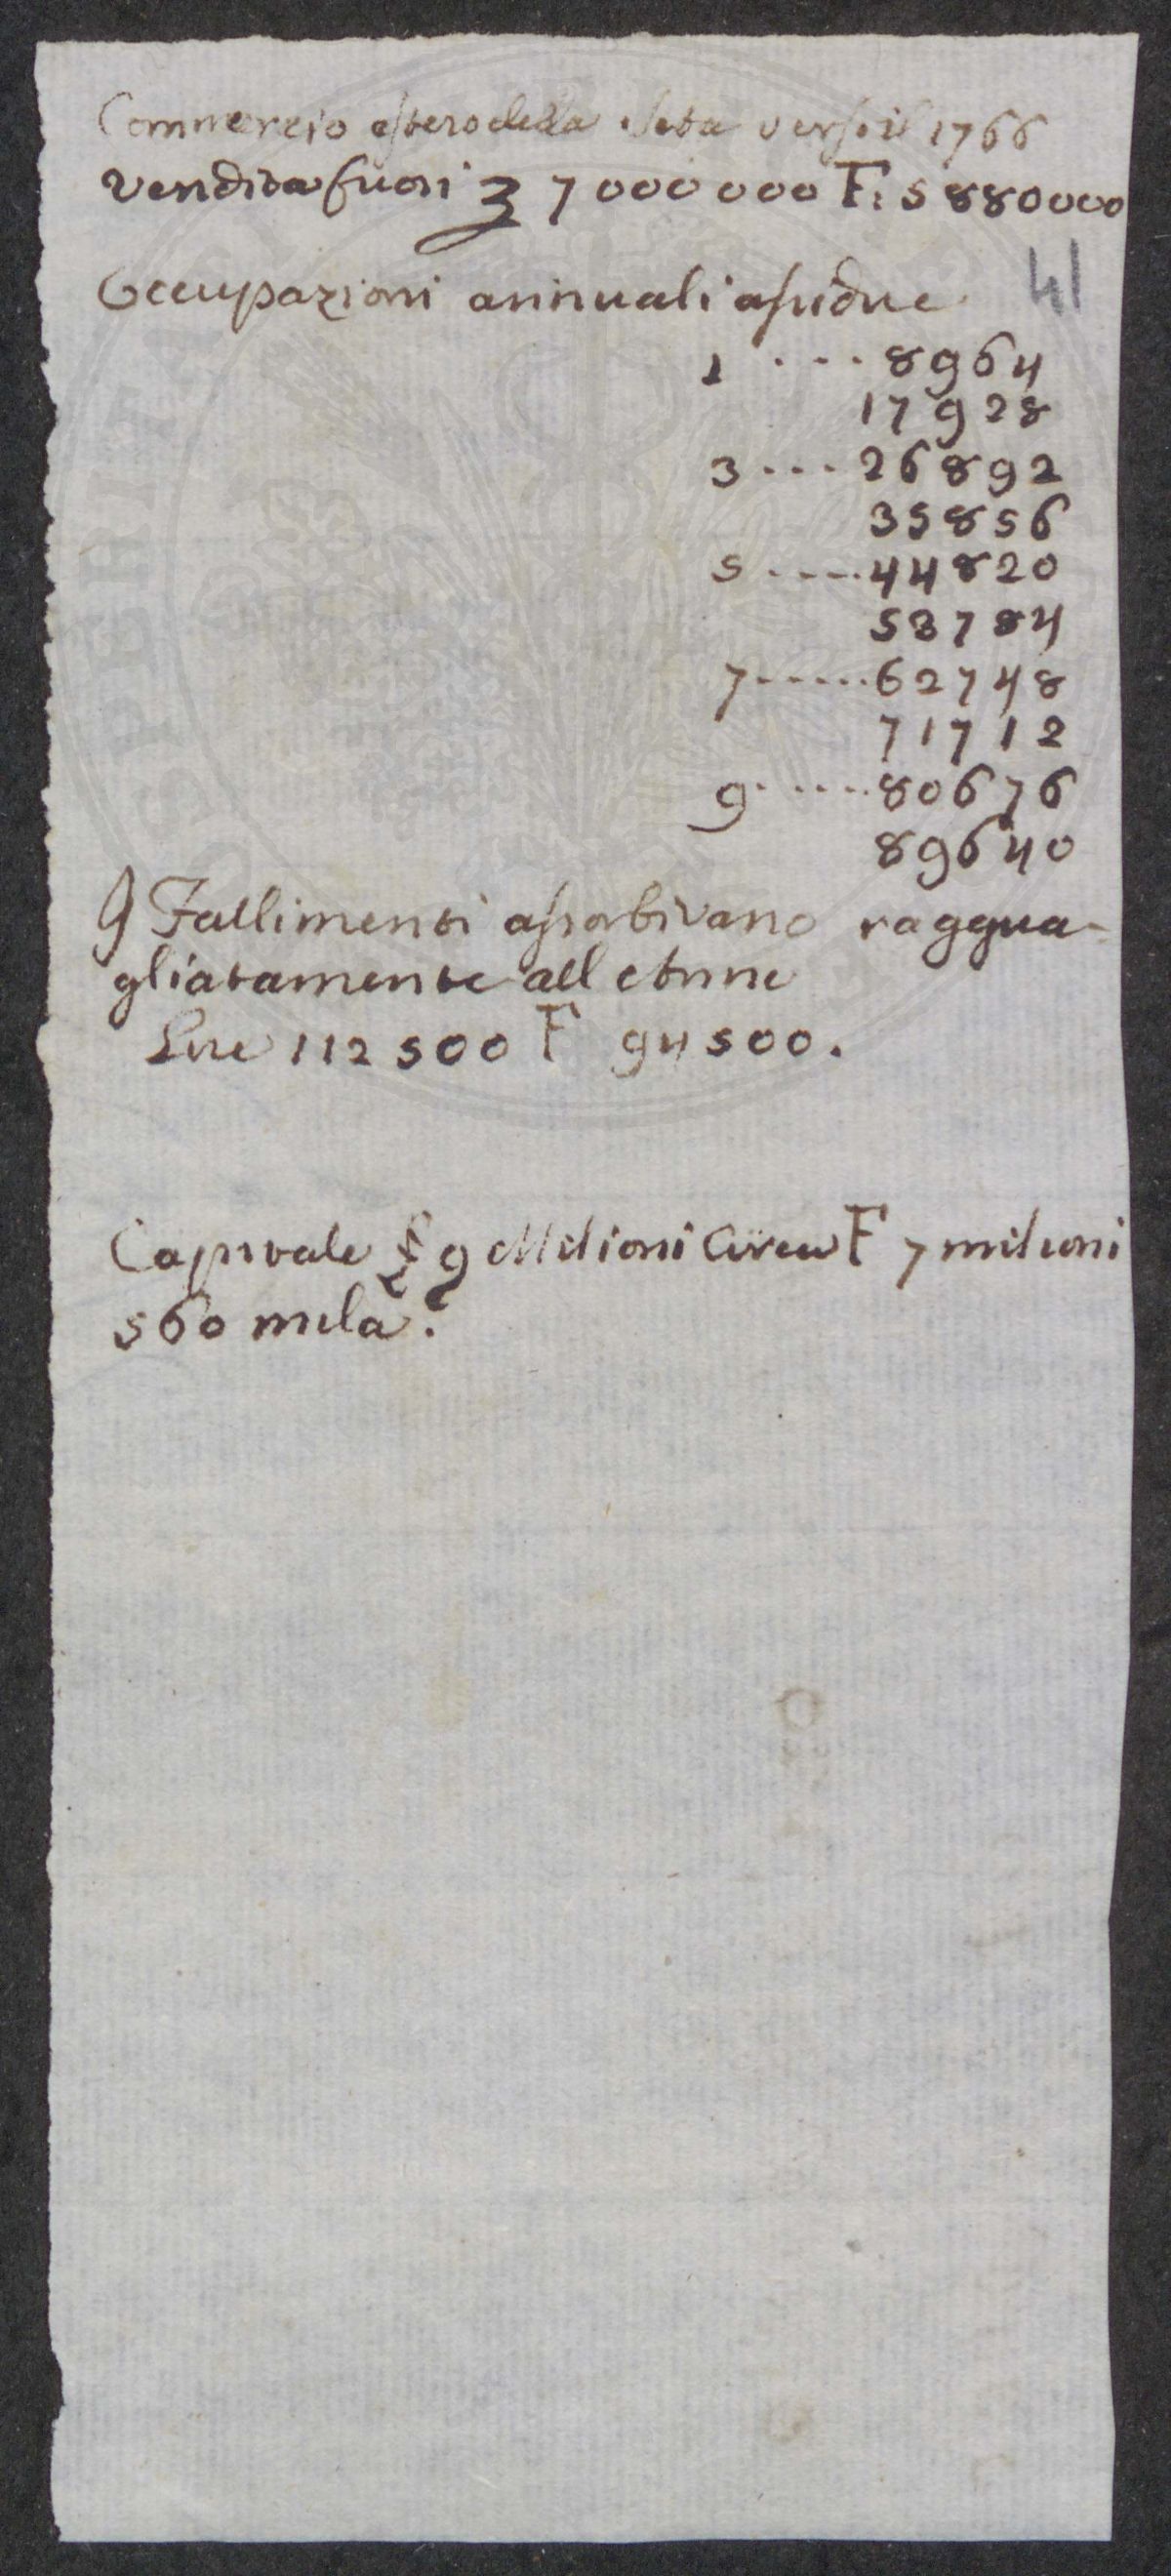 Commercio estero della Seta verso il 1766
Vendita fuori £ 7000000 F: 5880000
41
Occupazioni annuali assidue
1 .... 8964
17928
3 .... 26892
35856
5 ..... 44820
53784
7 ...... 62748
71712
9 ..... 80676
89640
I Fallimenti assorbivano raggua-
gliatamente all
Lire 112500 F 94500.
Capitale £ 9 Milioni Circa F 7 milioni
560 mila.